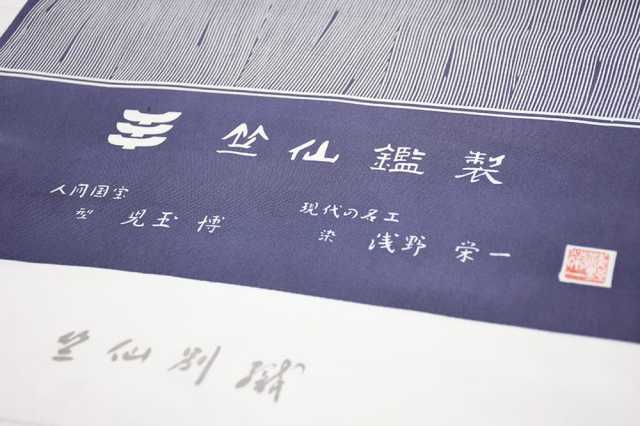 竺仙鑑製
人间国宝
型 児玉 博
現代の名工
染 浅野 栄一
竺仙別織